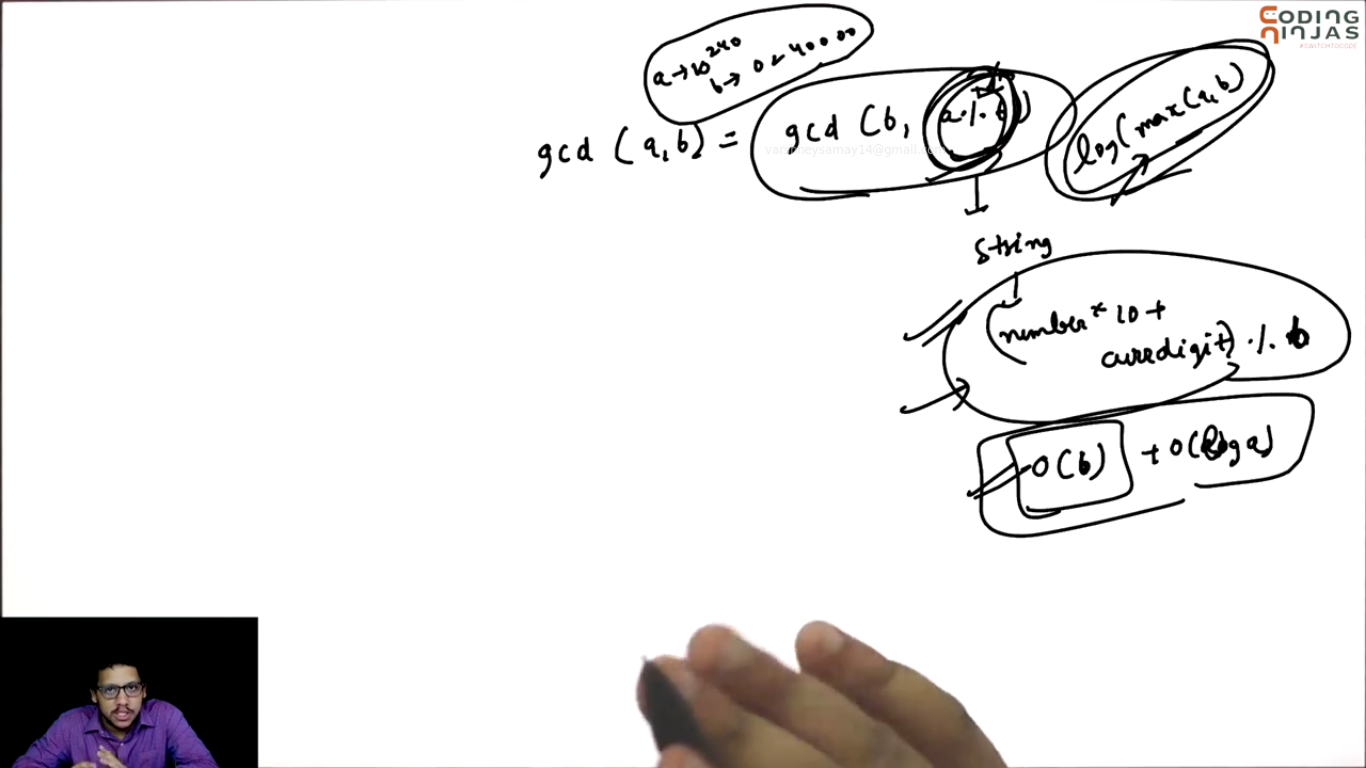 CODING
NINJAS
#SWITCHTOCODE
a→10^240
b→ 0 ↔ 40000
gcd (a,b) = gcd (b, a % b)
log(max(a,b)
varshneysamay14@gmail.com
String
(number* 10 +
currdigit) % b
O(b) + O(log a)